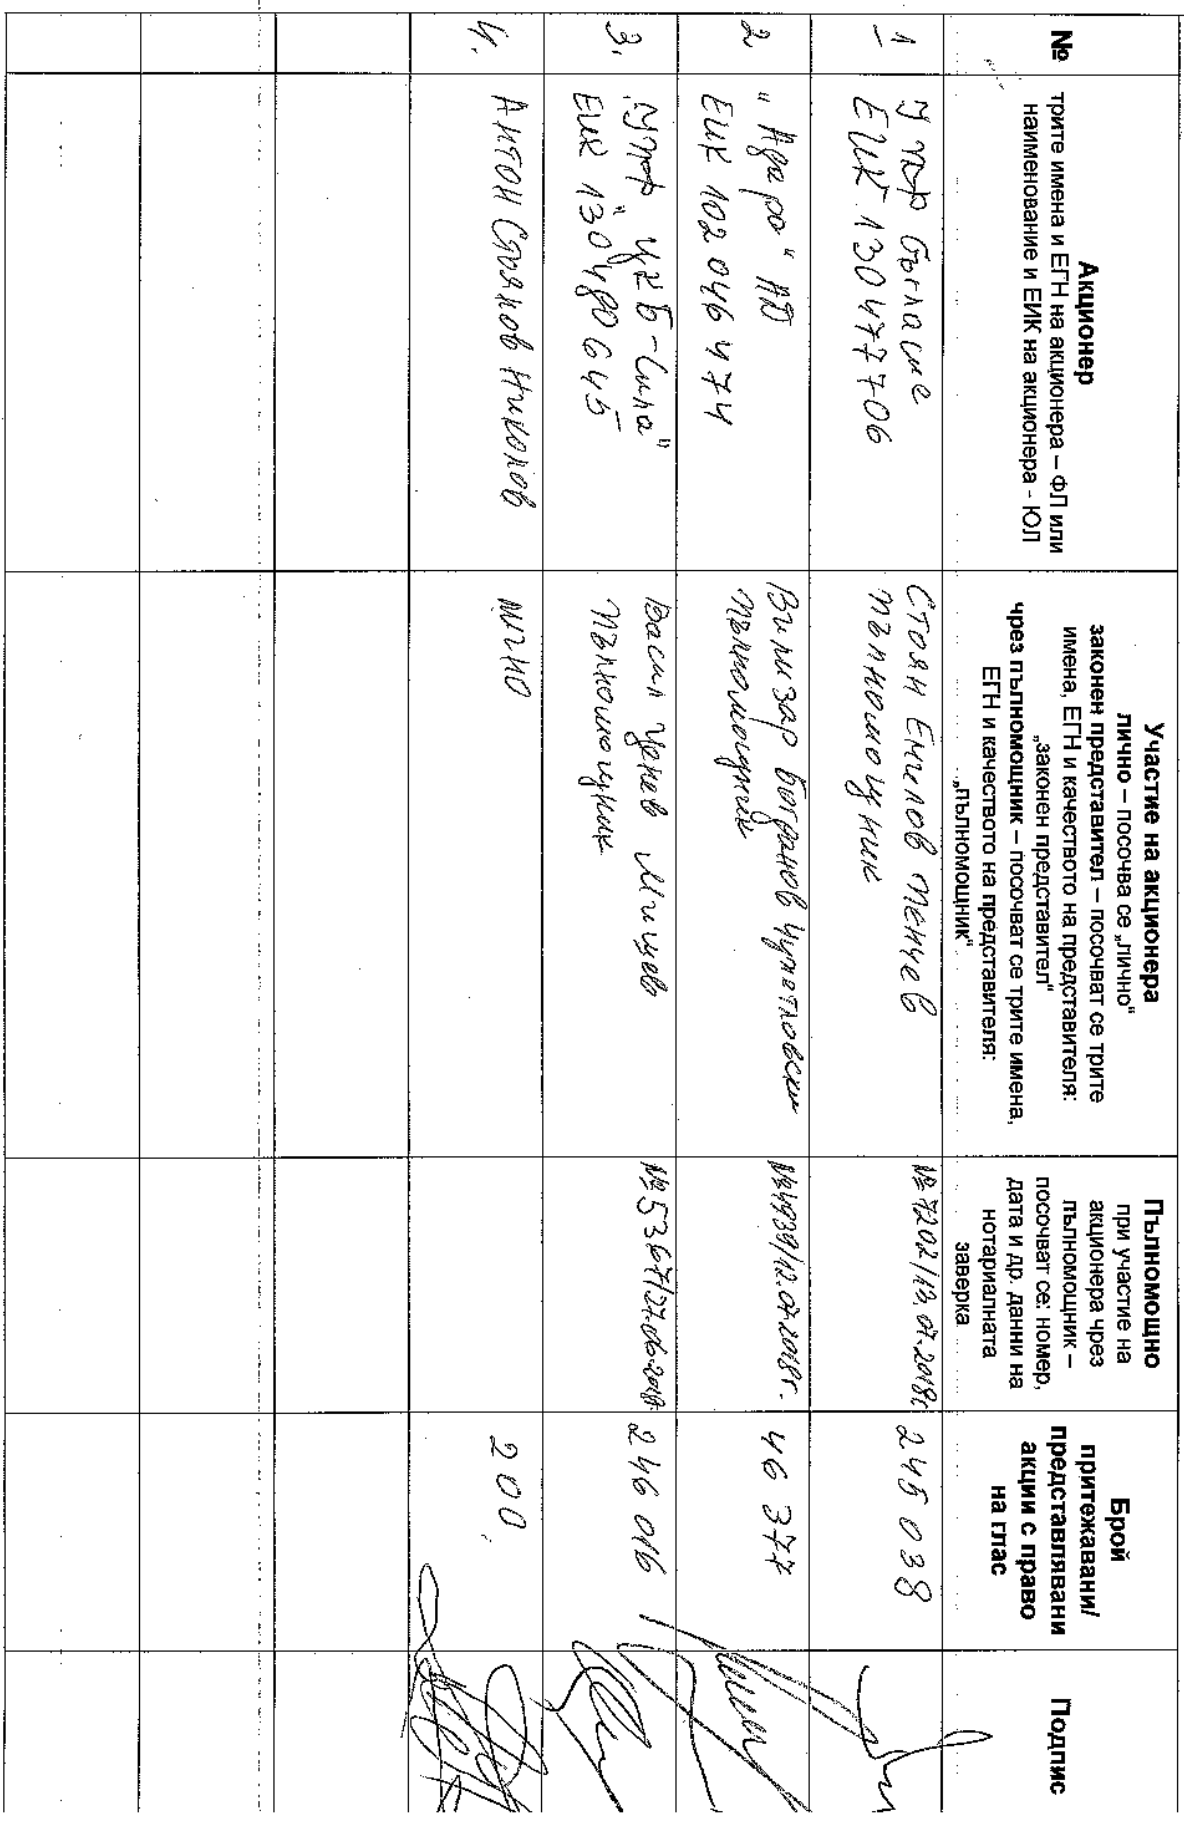 №
Акционер
трите имена и ЕГН на акционера – ФЛ или
наименование и ЕИК на акционера - ЮЛ
Участие на акционера
лично – посочва се „лично“
законен представител – посочват се трите
имена, ЕГН и качеството на представителя:
„законен представител“
чрез пълномощник – посочват се трите имена,
ЕГН и качеството на представителя:
„пълномощник“
Пълномощно
при участие на
акционера чрез
пълномощник –
посочват се: номер,
дата и др. данни на
нотариалната
заверка
Брой
притежавани/
представлявани
акции с право
на глас
Подпис
1
ЕИК 130477706
Стоян Емилов Пенчев
пълномощник
№ 7202/12.07.2018г
245 038
2
ЕИК 102046474
Богданов
пълномощник
№4939/12.07.2018г.
46 377
3.
ЕИК 130480645
Васил Ценев Мишев
пълномощник
№ 5367/27.06.2018
246 016
4.
Антон Стоянов Николов
лично
200